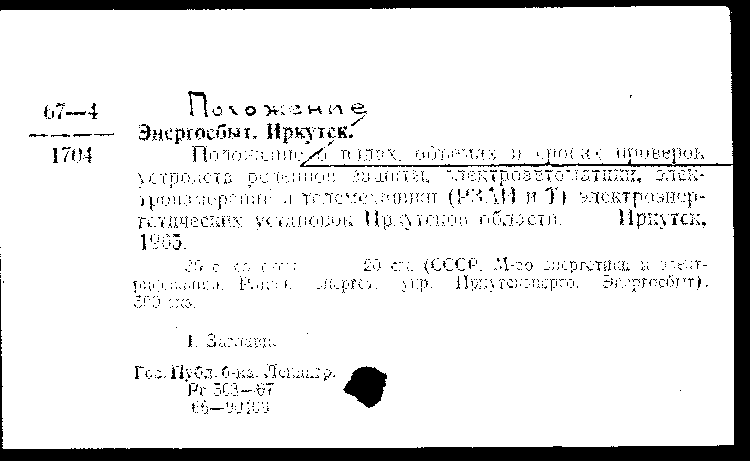 67—4
Положение
Энергосбыт. Иркутск.
1704
Положение о видах, объемах и сроках проверок
устройств релейной защиты, электроавтоматики, элек-
троизмерений и телемеханики (РЗАИ и Т) электроэнер-
гетических установок Иркутской области. Иркутск,
1965.
25 с. 20 см. (СССР. М-во энергетики и элект-
рификации. энергет. упр. Иркутскэнерго. Энергосбыт).
300 экз.
I. Заглавие.
Гос. Публ. б-ка. Ленингр.
Рг 503—67